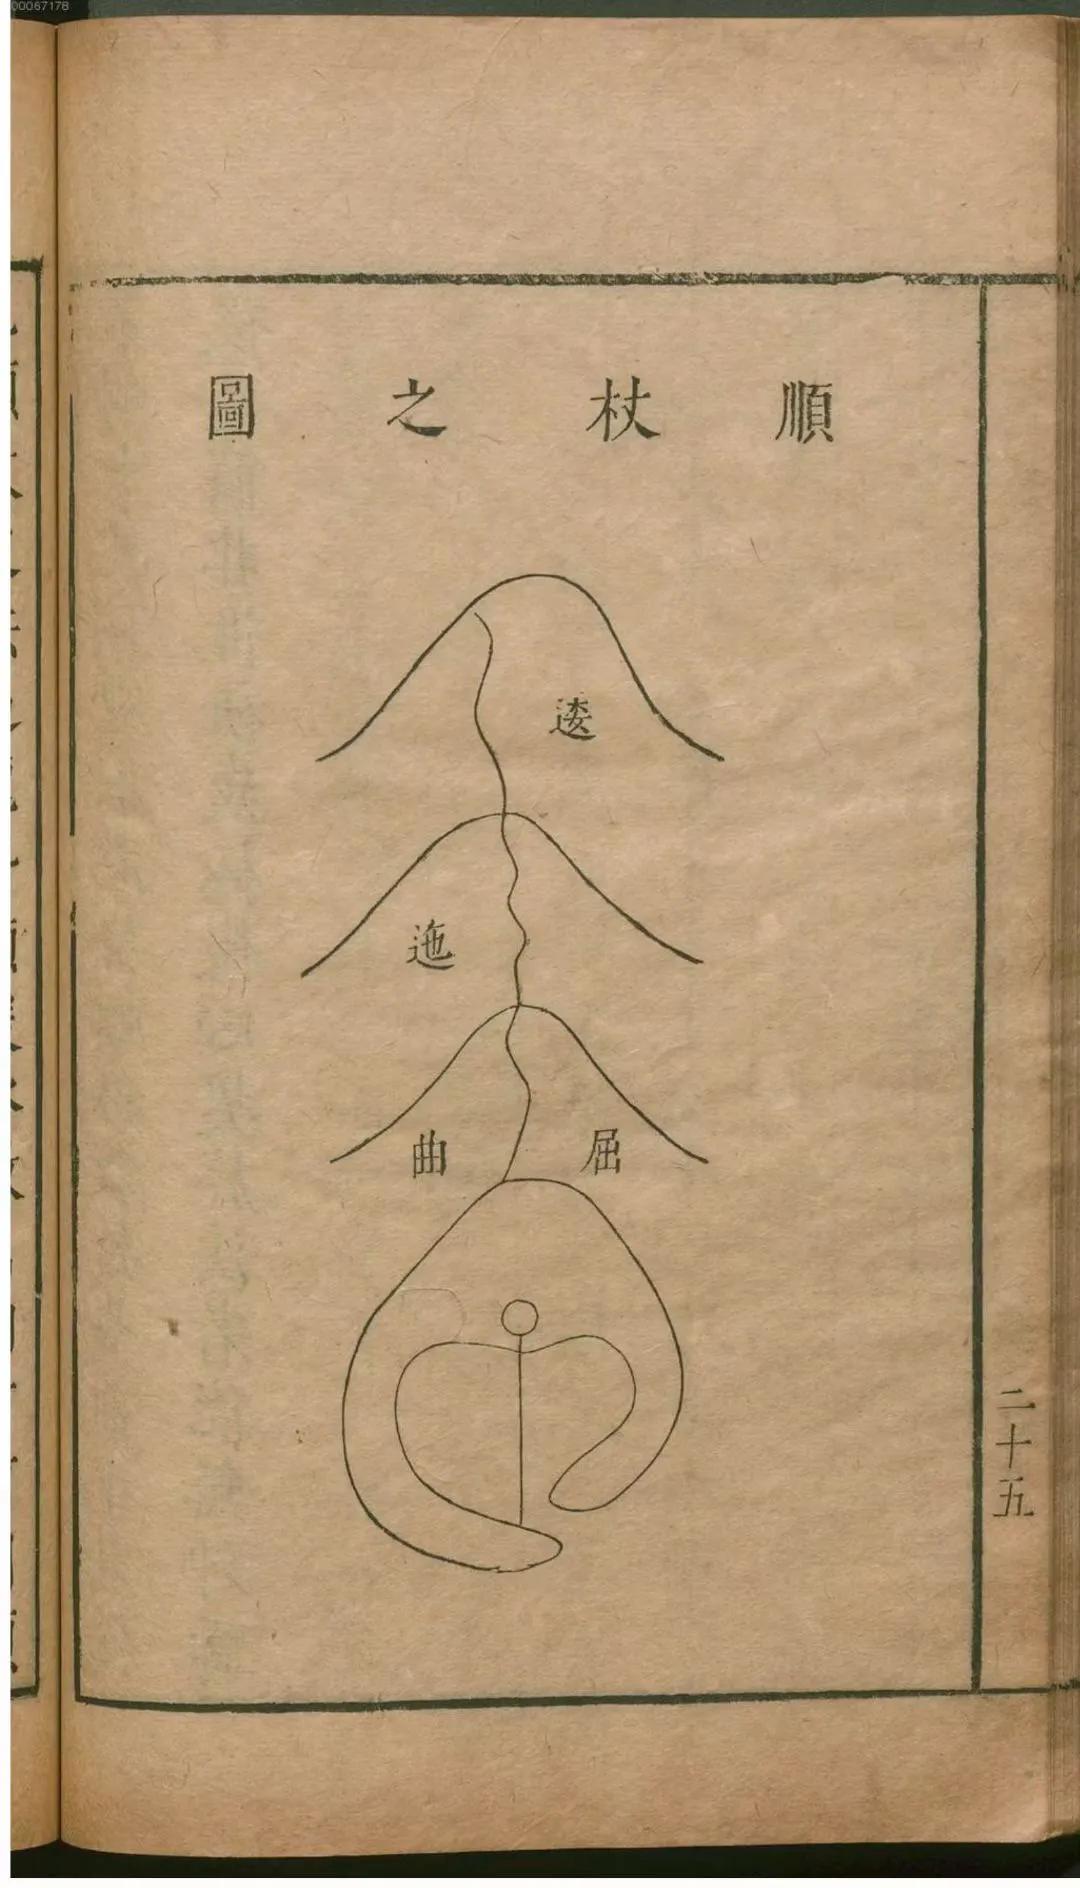 00067178
順杖之圖
逶
迤
屈曲
二十五